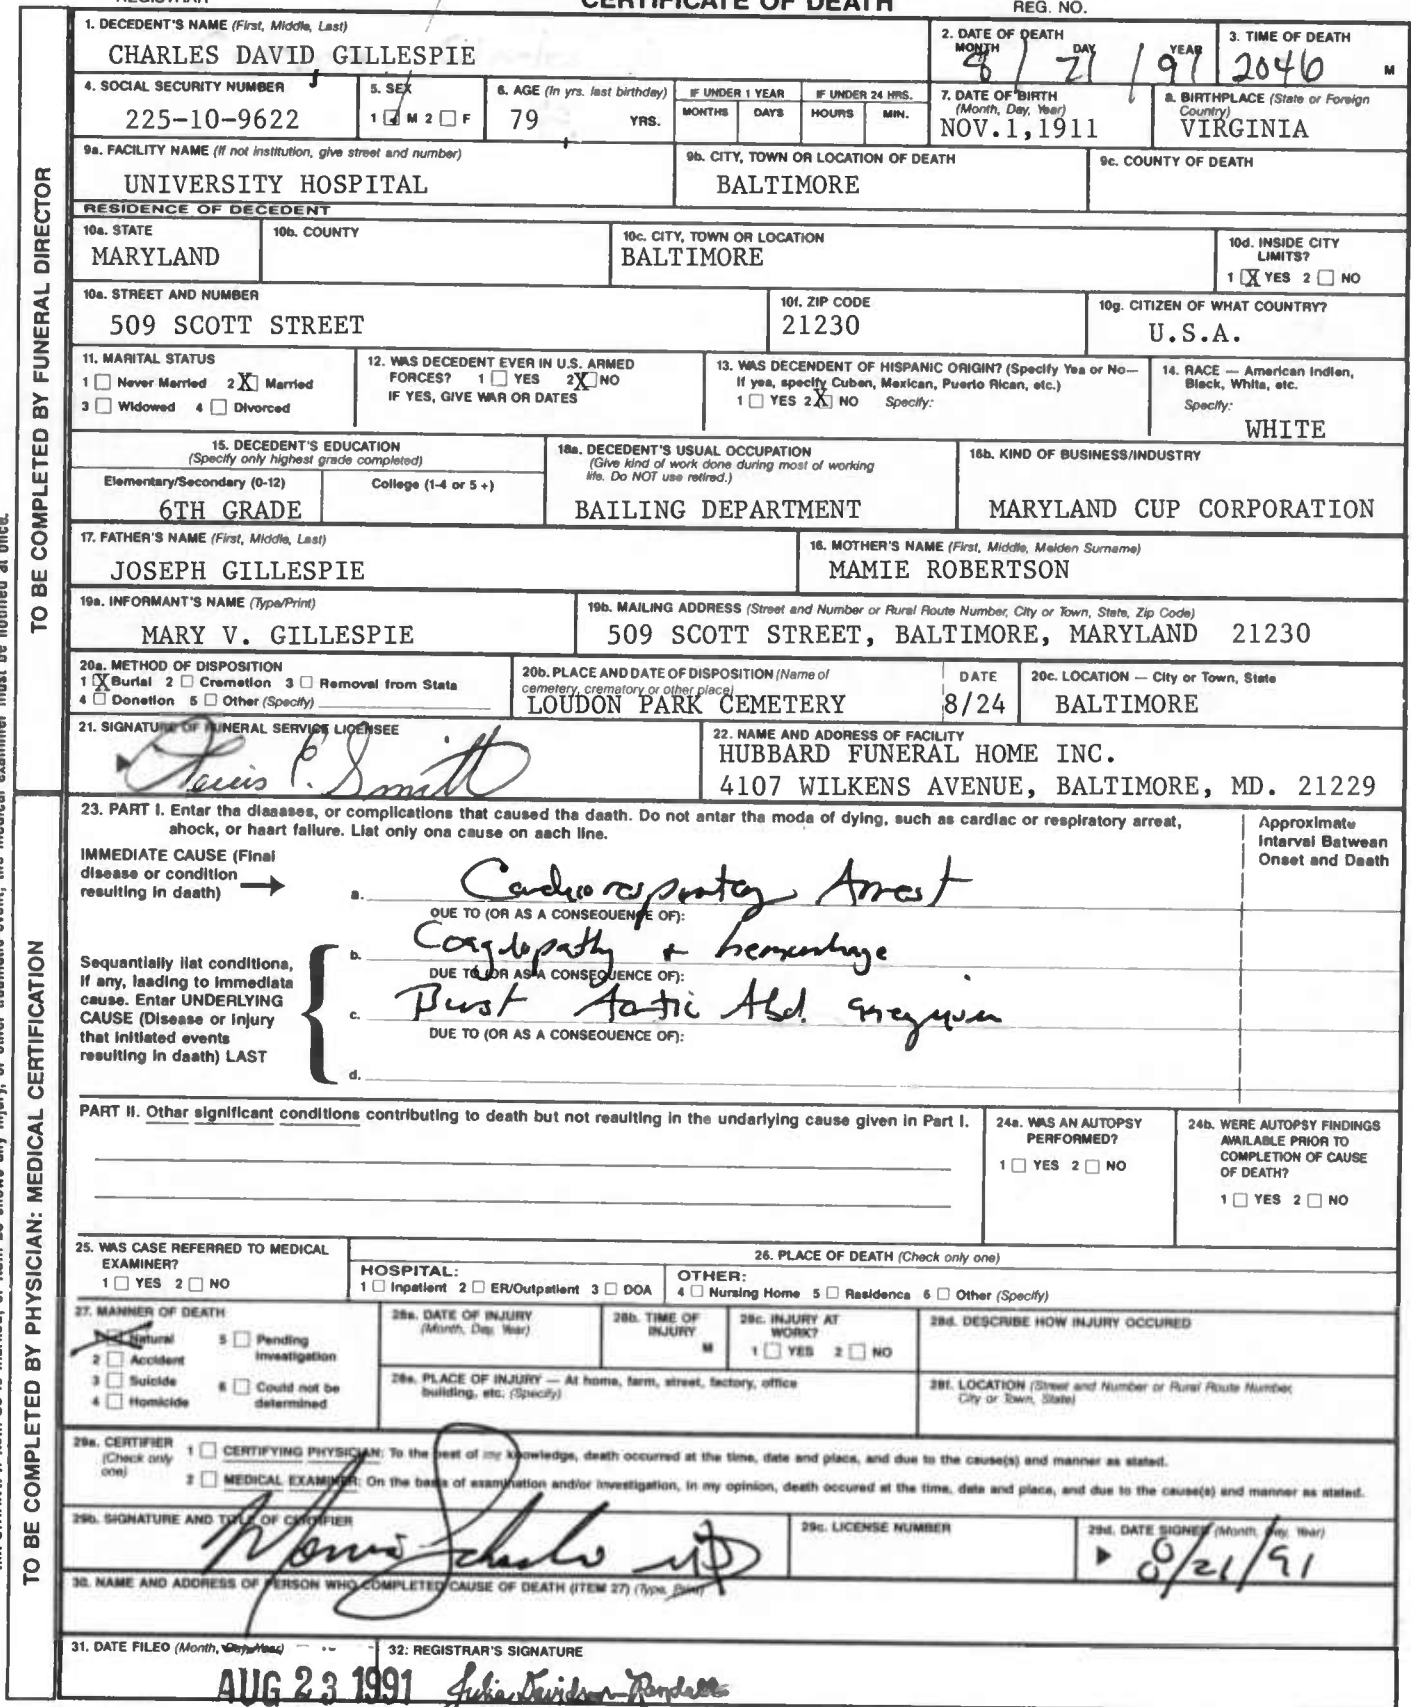 CERTIFICATE OF DEATH
REG. NO.
1. DECEDENT'S NAME (First, Middle, Last)
CHARLES DAVID GILLESPIE
2. DATE OF DEATH
MONTH DAY YEAR
8 / 21 / 91
3. TIME OF DEATH
2046 M
4. SOCIAL SECURITY NUMBER
225-10-9622
5. SEX
1 M 2 F
6. AGE (In yrs. last birthday)
79 YRS.
IF UNDER 1 YEAR
MONTHS DAYS
IF UNDER 24 HRS.
HOURS MIN.
7. DATE OF BIRTH
(Month, Day, Year)
NOV.1,1911
8. BIRTHPLACE (State or Foreign
Country)
VIRGINIA
9a. FACILITY NAME (If not institution, give street and number)
UNIVERSITY HOSPITAL
9b. CITY, TOWN OR LOCATION OF DEATH
BALTIMORE
9c. COUNTY OF DEATH
RESIDENCE OF DECEDENT
10a. STATE
MARYLAND
10b. COUNTY
10c. CITY, TOWN OR LOCATION
BALTIMORE
10d. INSIDE CITY
LIMITS?
1 X YES 2 NO
10e. STREET AND NUMBER
509 SCOTT STREET
10f. ZIP CODE
21230
10g. CITIZEN OF WHAT COUNTRY?
U.S.A.
11. MARITAL STATUS
1 Never Married 2 X Married
3 Widowed 4 Divorced
12. WAS DECEDENT EVER IN U.S. ARMED
FORCES? 1 YES 2 X NO
IF YES, GIVE WAR OR DATES
13. WAS DECENDENT OF HISPANIC ORIGIN? (Specify Yes or No—
If yes, specify Cuban, Mexican, Puerto Rican, etc.)
1 YES 2 X NO Specify:
14. RACE — American Indien,
Bleck, White, etc.
Specify:
WHITE
15. DECEDENT'S EDUCATION
(Specify only highest grade completed)
Elementary/Secondary (0-12) College (1-4 or 5 +)
6TH GRADE
16a. DECEDENT'S USUAL OCCUPATION
(Give kind of work done during most of working
life. Do NOT use retired.)
BAILING DEPARTMENT
16b. KIND OF BUSINESS/INDUSTRY
MARYLAND CUP CORPORATION
17. FATHER'S NAME (First, Middle, Last)
JOSEPH GILLESPIE
18. MOTHER'S NAME (First, Middle, Maiden Surname)
MAMIE ROBERTSON
19a. INFORMANT'S NAME (Type/Print)
MARY V. GILLESPIE
19b. MAILING ADDRESS (Street and Number or Rural Route Number, City or Town, State, Zip Code)
509 SCOTT STREET, BALTIMORE, MARYLAND 21230
20a. METHOD OF DISPOSITION
1 X Burial 2 Cremetion 3 Removal from State
4 Donetion 5 Other (Specify)
20b. PLACE AND DATE OF DISPOSITION (Name of
cemetery, crematory or other place)
LOUDON PARK CEMETERY
DATE
8/24
20c. LOCATION — City or Town, State
BALTIMORE
21. SIGNATURE OF FUNERAL SERVICE LICENSEE
Smith
22. NAME AND ADDRESS OF FACILITY
HUBBARD FUNERAL HOME INC.
4107 WILKENS AVENUE, BALTIMORE, MD. 21229
23. PART I. Enter the diseases, or complications that caused the death. Do not enter the mode of dying, such as cardiac or respiratory arrest,
shock, or heart failure. List only one cause on each line.
Approximate
Interval Between
Onset and Death
IMMEDIATE CAUSE (Final
disease or condition
resulting in death)
a. Cardiorespiratory Arrest
DUE TO (OR AS A CONSEQUENCE OF):
b. Coagulopathy + hemorrhage
DUE TO (OR AS A CONSEQUENCE OF):
Sequentially list conditions,
if any, leading to immediate
cause. Enter UNDERLYING
CAUSE (Disease or injury
that initiated events
resulting in death) LAST
c. Burst Aortic Abd.
DUE TO (OR AS A CONSEQUENCE OF):
d.
PART II. Other significant conditions contributing to death but not resulting in the underlying cause given in Part I.
24a. WAS AN AUTOPSY
PERFORMED?
1 YES 2 NO
24b. WERE AUTOPSY FINDINGS
AVAILABLE PRIOR TO
COMPLETION OF CAUSE
OF DEATH?
1 YES 2 NO
25. WAS CASE REFERRED TO MEDICAL
EXAMINER?
1 YES 2 NO
26. PLACE OF DEATH (Check only one)
HOSPITAL:
1 Inpatient 2 ER/Outpatient 3 DOA
OTHER:
4 Nursing Home 5 Residence 6 Other (Specify)
27. MANNER OF DEATH
Natural 5 Pending
Investigation
2 Accident
3 Suicide 6 Could not be
determined
4 Homicide
28a. DATE OF INJURY
(Month, Day, Year)
28b. TIME OF
INJURY
M
28c. INJURY AT
WORK?
1 YES 2 NO
28d. DESCRIBE HOW INJURY OCCURED
28e. PLACE OF INJURY — At home, farm, street, factory, office
building, etc. (Specify)
28f. LOCATION (Street and Number or Rural Route Number,
City or Town, State)
29a. CERTIFIER
(Check only
one)
1 CERTIFYING PHYSICIAN: To the best of my knowledge, death occurred at the time, date and place, and due to the cause(s) and manner as stated.
2 MEDICAL EXAMINER: On the basis of examination and/or investigation, in my opinion, death occured at the time, date and place, and due to the cause(s) and manner as stated.
29b. SIGNATURE AND TITLE OF CERTIFIER
MD
29c. LICENSE NUMBER
29d. DATE SIGNED (Month, Day, Year)
8/21/91
30. NAME AND ADDRESS OF PERSON WHO COMPLETED CAUSE OF DEATH (ITEM 27) (Type, Print)
31. DATE FILED (Month, Day, Year)
AUG 23 1991
32: REGISTRAR'S SIGNATURE
Julia Davidson-Randall
TO BE COMPLETED BY FUNERAL DIRECTOR
TO BE COMPLETED BY PHYSICIAN: MEDICAL CERTIFICATION